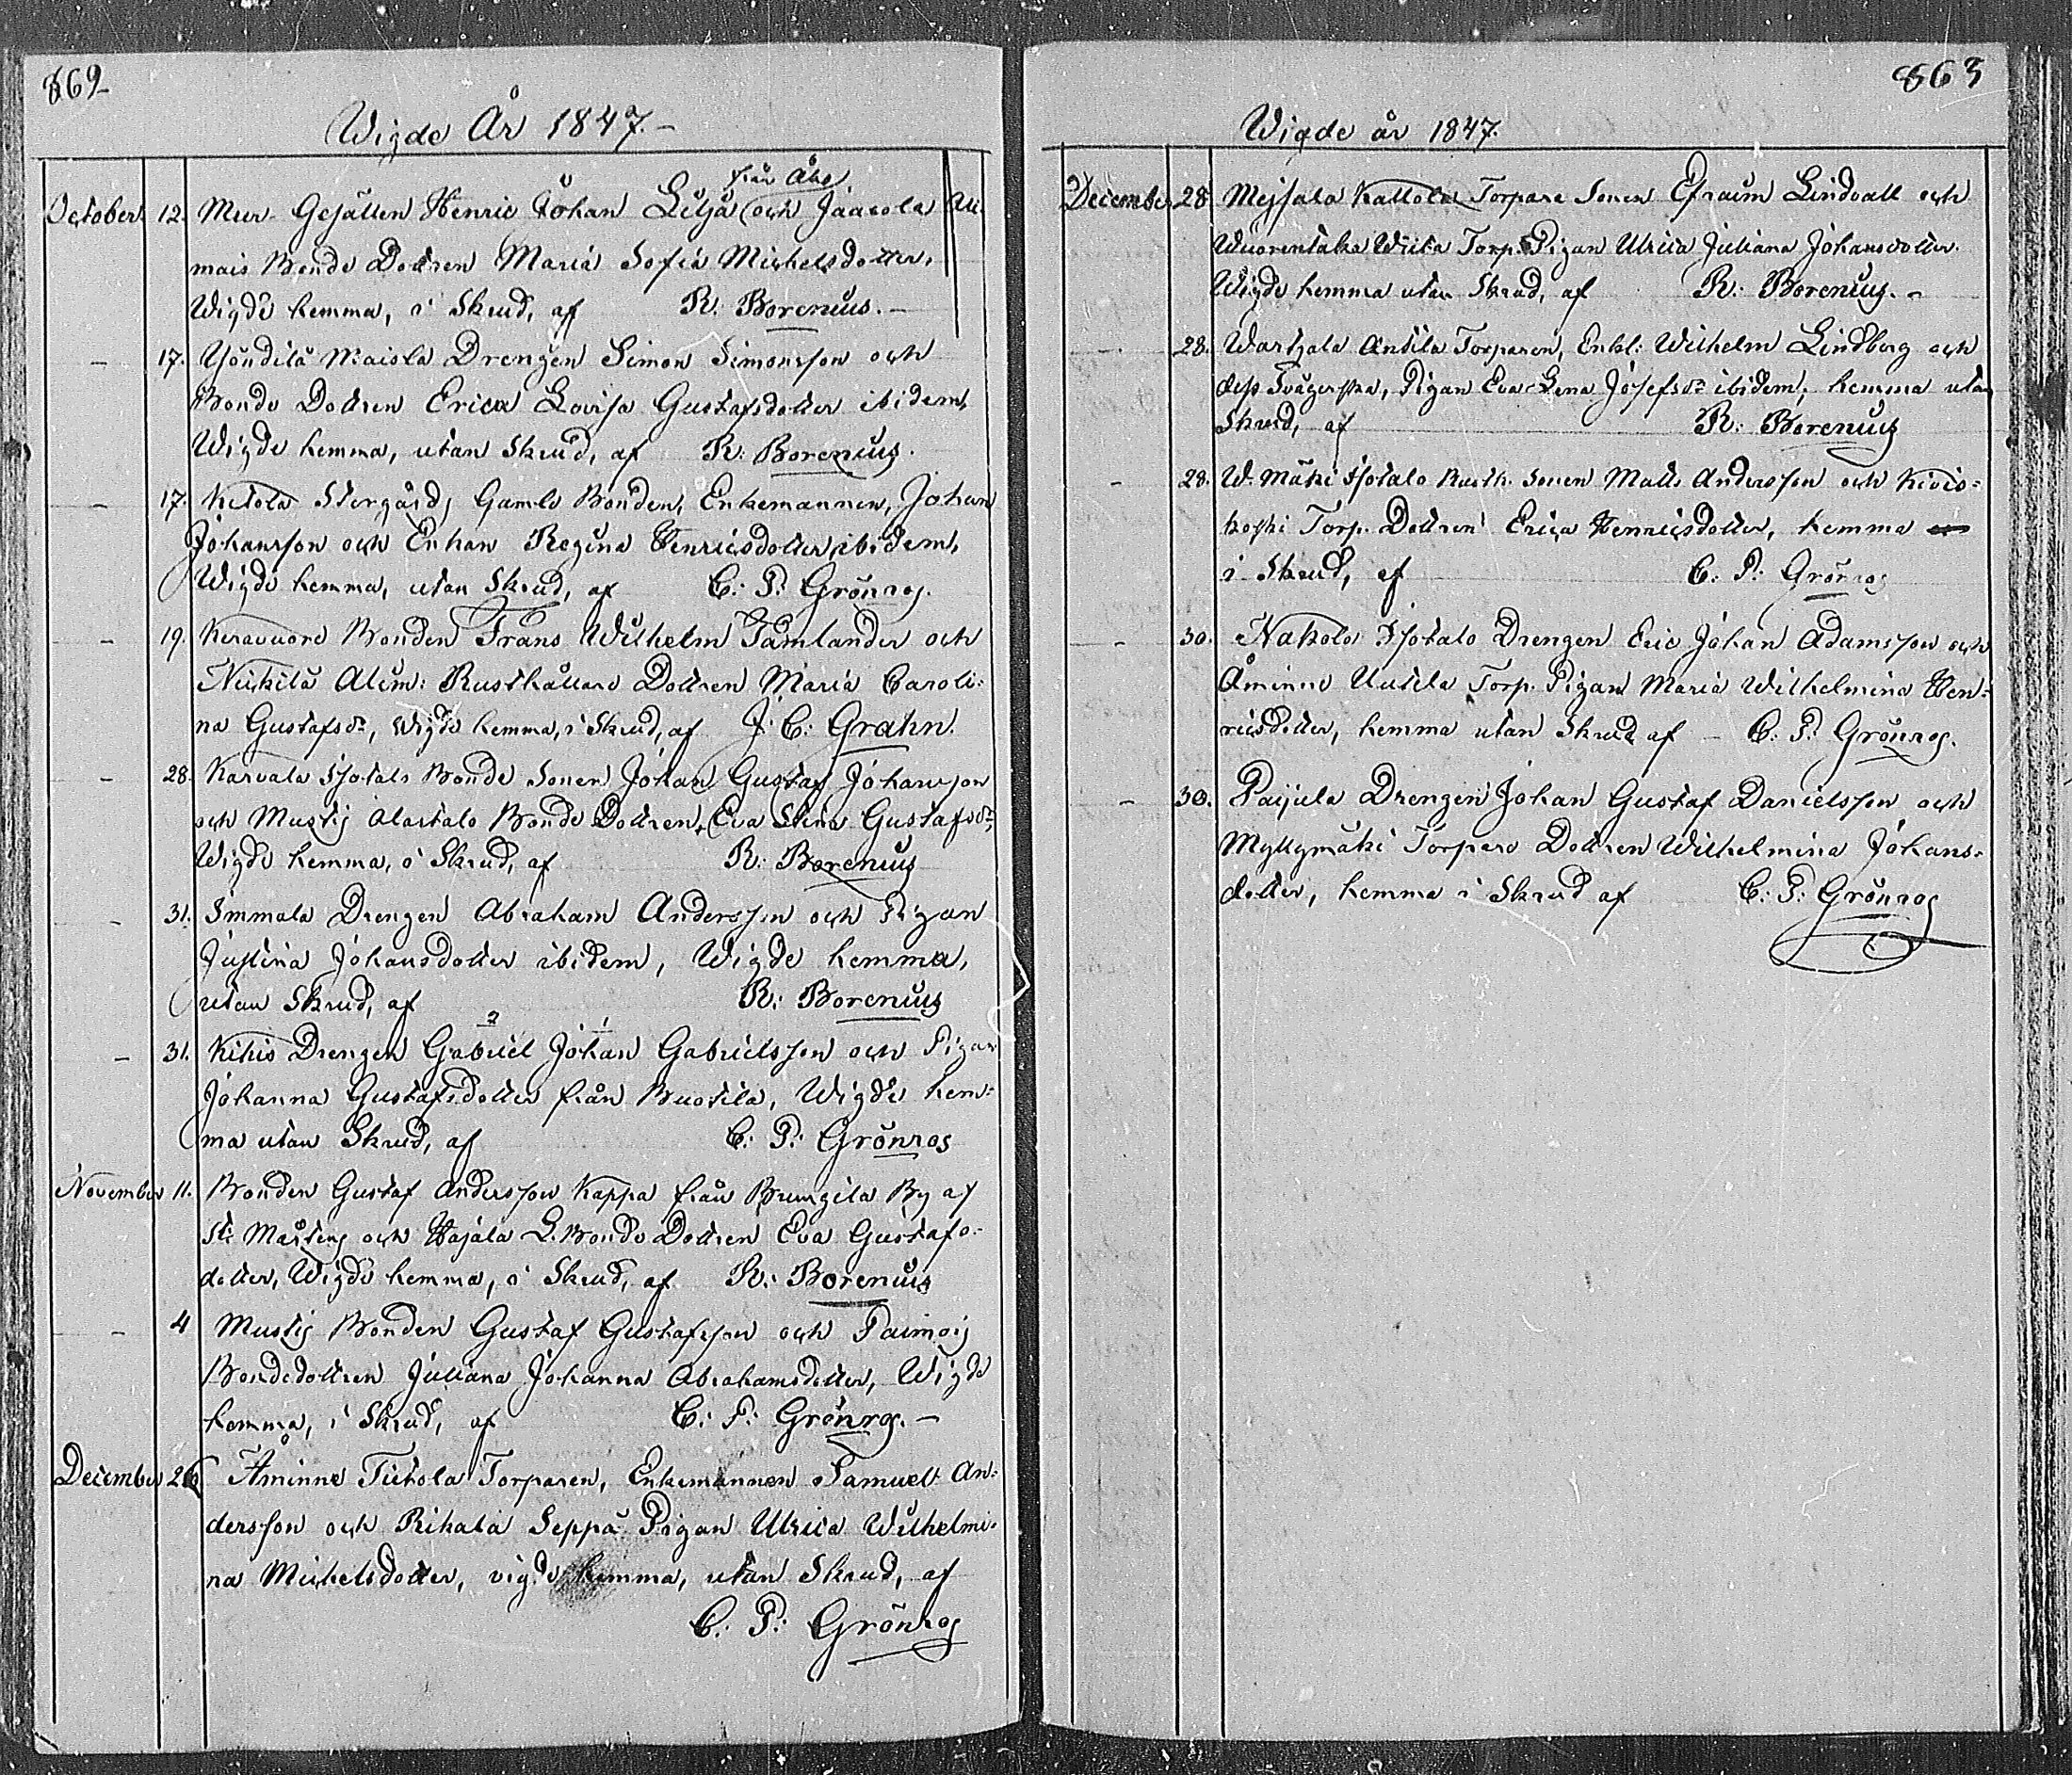 862
Wigde År 1847.-
från Åbo
October 12. Mur-Gesällen Henric Johan Lilja och Jaacola Ali-
mais Bonde Dottren Maria Sofia Michelsdotter,
Wigde hemma, i Skrud, af R. Borenius.-
- 17. Yöndilä Maisla Drengen Simon Simonsson och
Bonde Dottren Erica Lovisa Gustafsdotter ibidem,
Wigde hemma, utan Skrud, af R: Borenius.
- 17. Ketola Storgård, Gamle Bonden, Enkemannen, Johan
Johansson och Enkan Regina Henricsdotter ibidem,
Wigde hemma, utan Skrud, af C: P: Grönros.
- 19. Keravuore Bonden Frans Wilhelm Tamlander och
Nickilä Alim: Rusthållare Dottren Maria Caroli-
na Gustafsdr, Wigde hemma, i Skrud, af J: C: Grahn.
- 28. Karvala Isotalo Bonde Sonen Johan Gustaf Johansson
och Mustis Alastalo Bonde Dottren, Eva Stina Gustafsdr,
Wigde hemma, i Skrud, af R: Borenius
- 31. Immala Drengen Abraham Andersson och Pigan
Justina Johansdotter ibidem, Wigde hemma,
utan Skrud, af R: Borenius
2 1
- 31. Kihis Drengen Gabriel Johan Gabrielsson och Pigan
Johanna Gustafsdotter från Ruotila, Wigde hem-
ma utan Skrud, af C: P: Grönros
November 11. Bonden Gustaf Andersson Kappa från Brungila By af
St: Mårtens och Hajala L. Bonde Dottren Eva Gustafs-
dotter, Wigde hemma, i Skrud, af R: Borenius
- 4 Mustis Bonden Gustaf Gustafsson och Paimois
Bondedottren Juliana Johanna Abrahamsdotter, Wigde
hemma, i Skrud, af C: P: Grönros.-
December 26 Åminne Tietola Torparen, Enkemannen Samuel An-
dersson och Rikala Seppä Pigan Ulrica Wilhelmi-
na Michelsdotter, vigde hemma, utan Skrud, af
C: P: Grönros
863
Wigde år 1847.
December 28 Mejsala Kallola Torpare Sonen Efraim Lindvall och
Wuorentaka Wiita Torp. Pigan Ulrica Juliana Johansdotter.
Wigde hemma utan Skrud, af R: Borenius.-
- 28. Wartzala Antila Torparen, Enkl: Wilhelm Lindberg och
dess Svägerska, Pigan Eva Lena Josefsdr ibidem, hemma utan
Skrud, af R: Borenius
- 28. W. Mäki Isotalo Rusth. Sonen Matts Andersson och Kivis-
koski Torp. Dottren Erica Henricsdotter, hemma
i Skrud, af C: P: Grönros
- 30. Nakola Isotalo Drengen Eric Johan Adamsson och
Åminne Uutela Torp. Pigan Maria Wilhelmina Hen-
ricsdotter, hemma utan Skrud af - C: P: Grönros.
- 30. Paijula Drengen Johan Gustaf Danielsson och
Myllymäki Torpare Dottren Wilhelmina Johans-
dotter, hemma i Skrud af C: P: Grönros